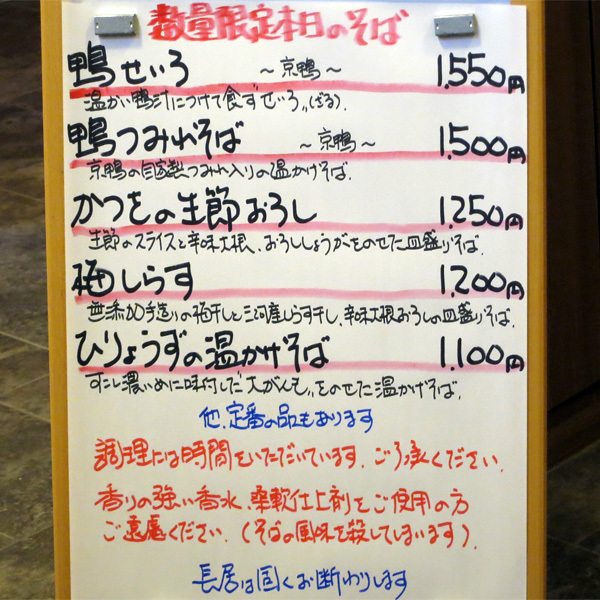 数量限定本日のそば
鴨せいろ ～京鴨～ 1,550円
温かい鴨汁につけて食す"せいろ"(ざる).
鴨つみれそば ～京鴨～ 1,500円
京鴨の自家製つみれ入りの温かけそば.
かつをの生節おろし 1,250円
生節のスライスと辛味大根、おろししょうがをのせた皿盛りそば.
梅しらす 1,200円
無添加手造りの梅干しと三河産しらす干し、辛味大根おろしの皿盛りそば.
ひりょうずの温かけそば 1,100円
すこし濃いめに味付した"大がんも"をのせた温かけそば.
他、定番の品もあります
調理には時間をいただいています. ご了承ください.
香りの強い香水、柔軟仕上剤をご使用の方
ご遠慮ください. (そばの風味を殺してしまいます).
長居は固くお断わりします